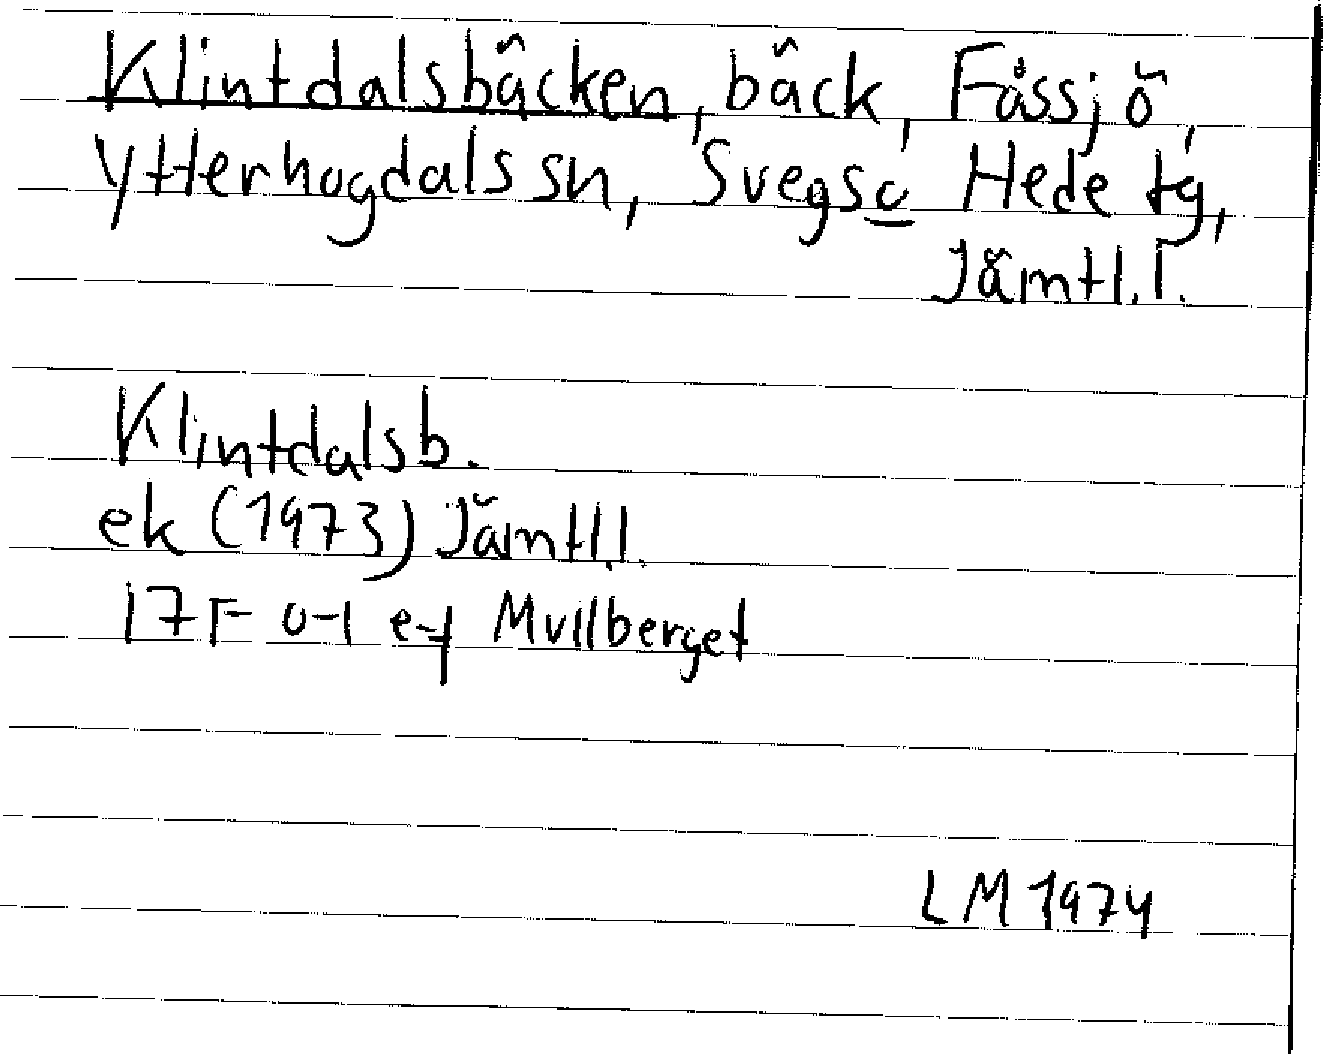 Klintdalsbäcken, bäck, Fåssjö,
Ytterhogdals sn, Svegs o Hede tg,
Jämtl. l.
Klintdalsb.
ek (1973) Jämtl l.
17F 0-1 e-f Mullberget
LM 1974